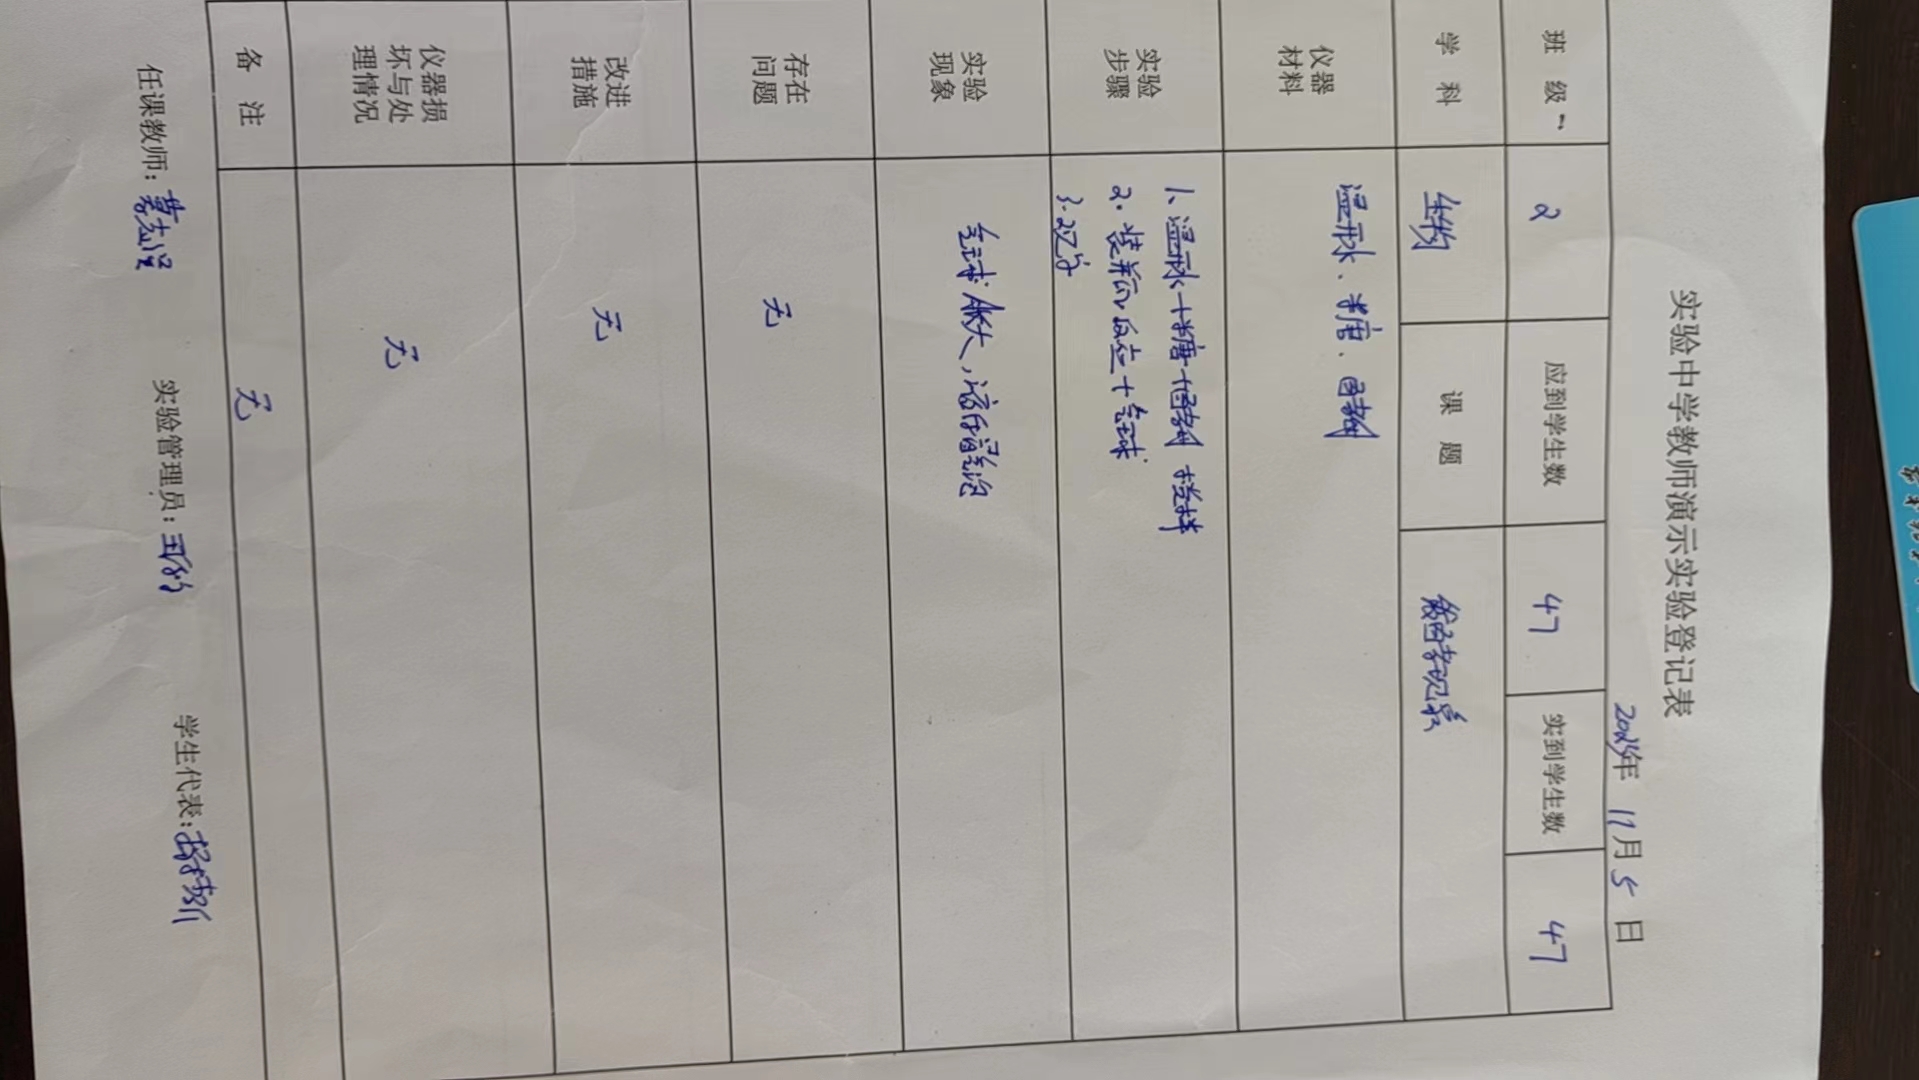 实验中学教师演示实验登记表
年 11月 5 日
班 级 2 应到学生数 47 实到学生数 47
学 科 生物 课 题 现象
仪器材料 温开水、糖、酵母
实验步骤 1、温开水+糖+酵母 搅拌
2. 装瓶 +气球
3. 观察
实验现象 气球胀大,
存在问题 无
改进措施 无
仪器损坏与处理情况 无
备 注 无
任课教师: 实验管理员: 学生代表: